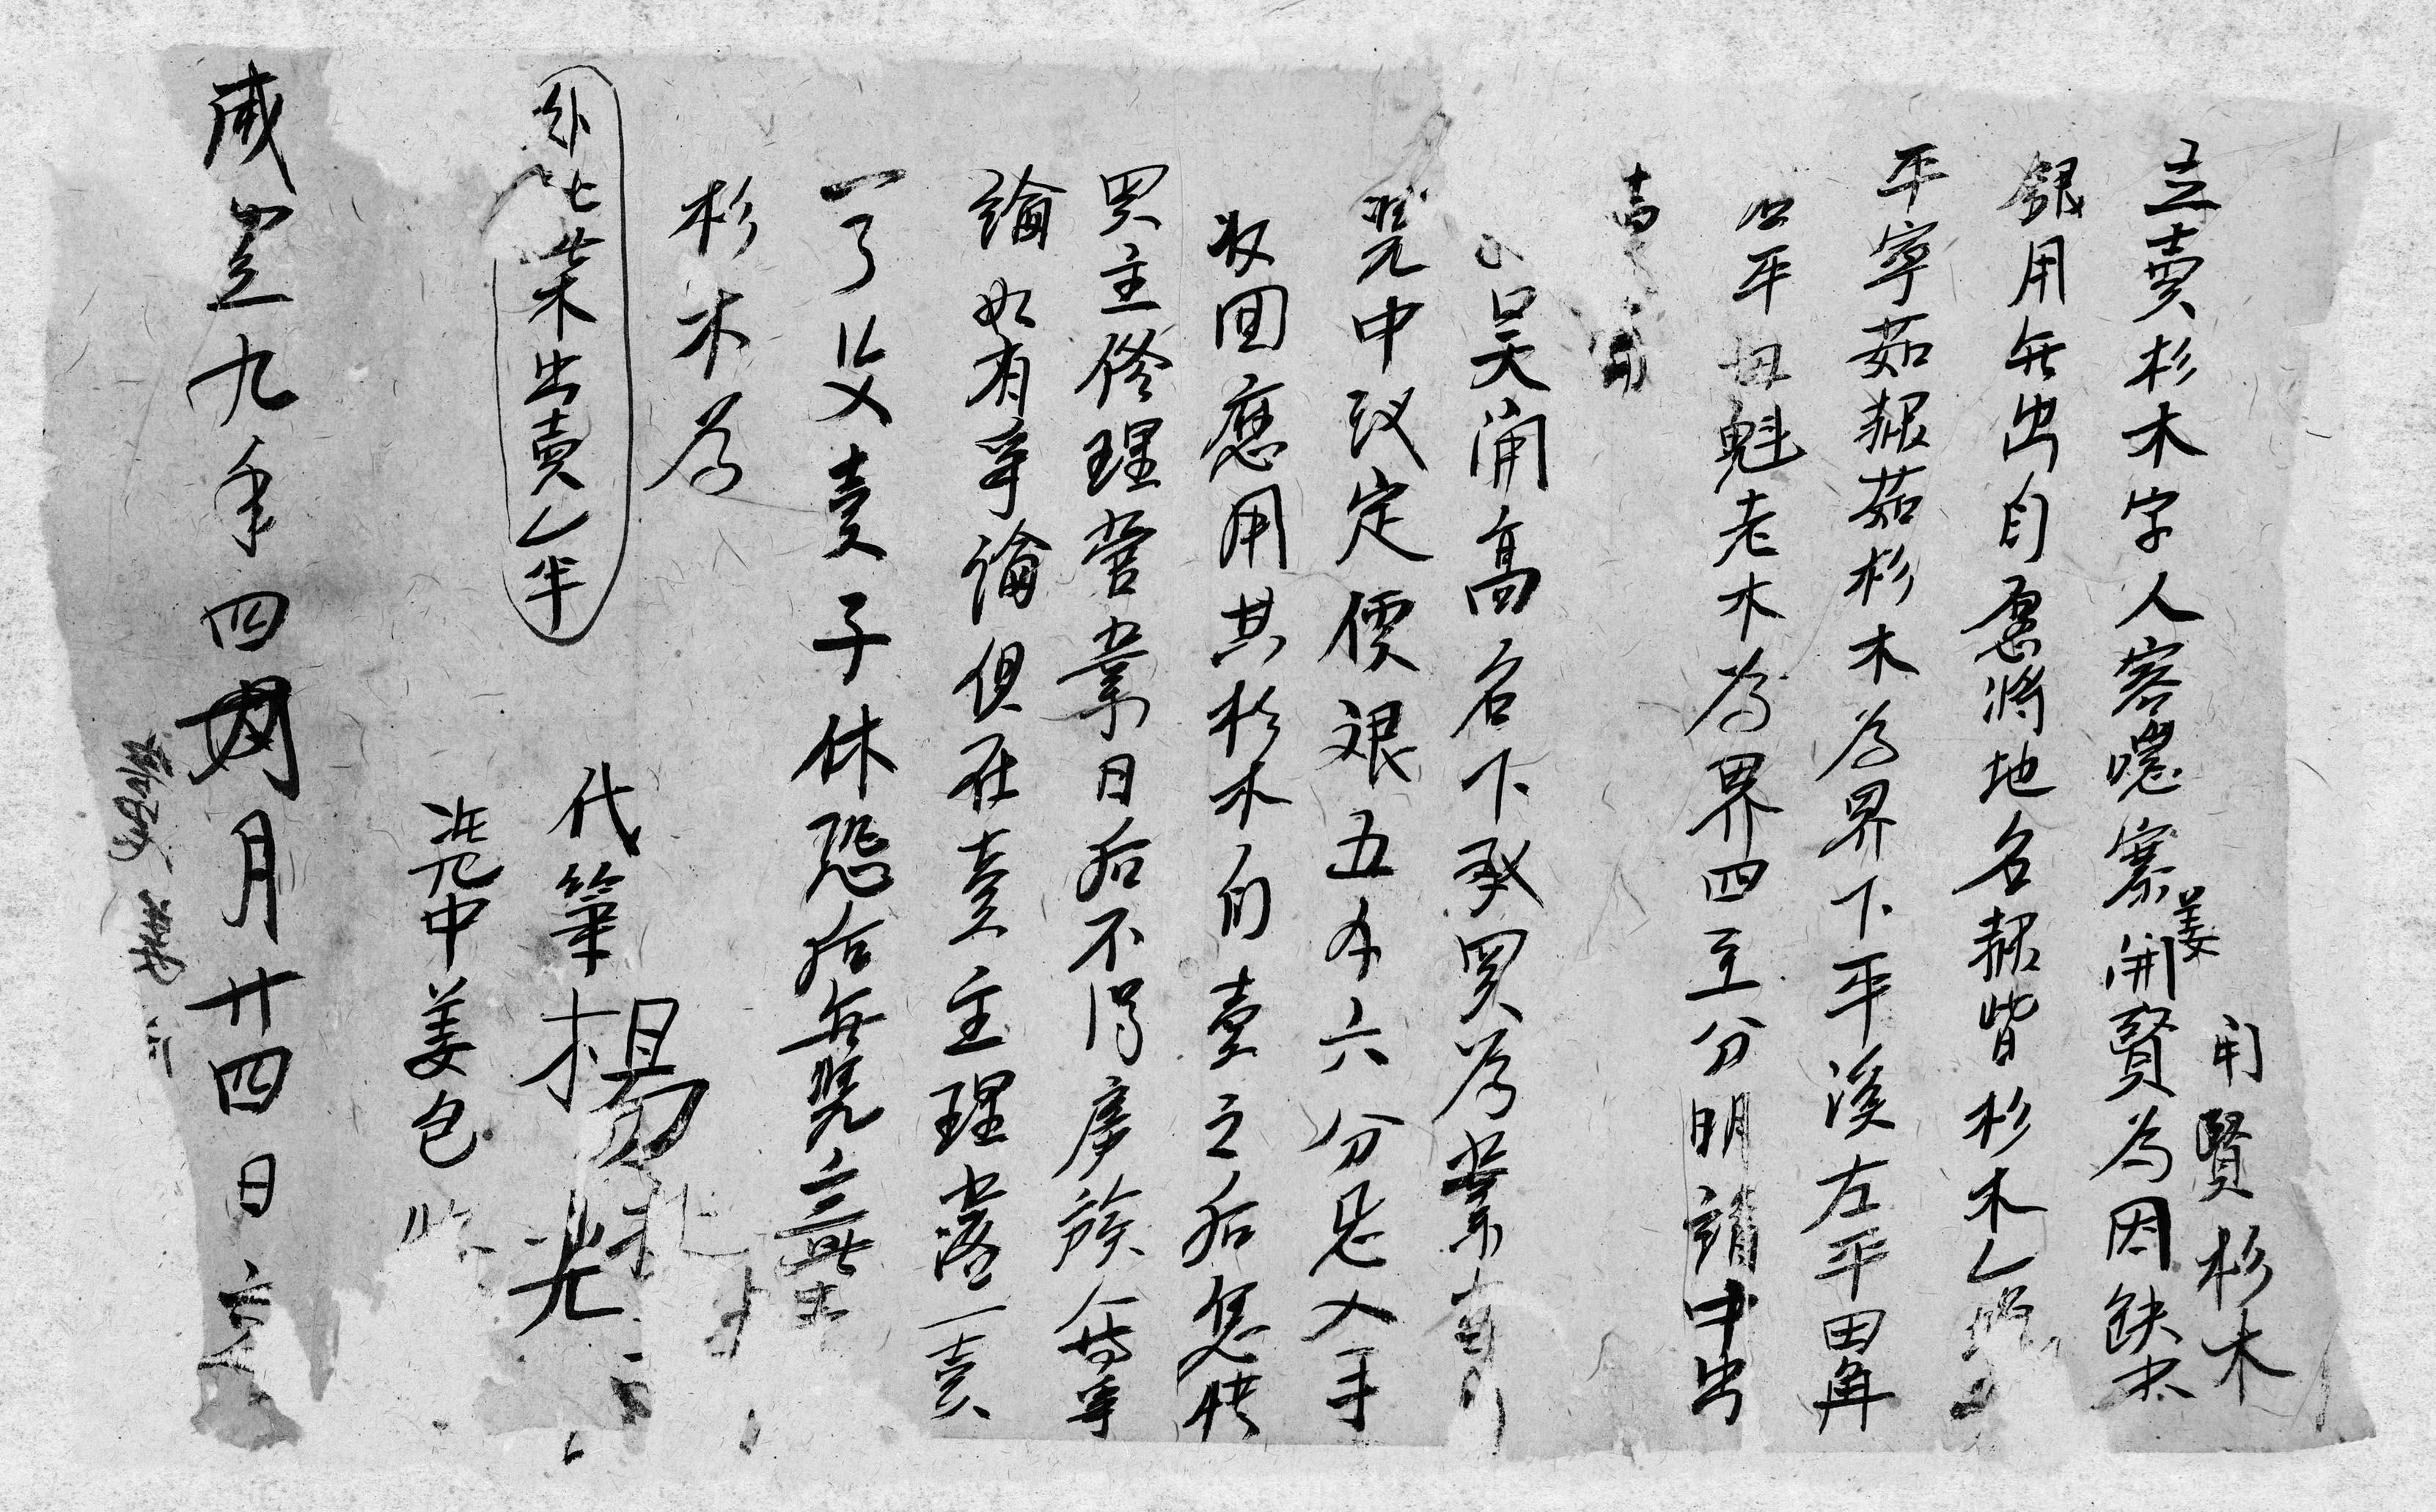 開賢杉木
立賣杉木字人容嗯寨姜開賢為因缺少
銀用無出自愿將地名報皆杉木乙
平寧茹報茹杉木為界下平溪左平田角
右平 魁老木為界四至分明請中出

吴開高名下承買為業
凴中议定價艮五千六分足入手
收回應用其杉木自賣之后恁從
買主修理管業日后不得房族人等爭
論如有爭論俱在賣主理落一賣
一了父賣子休恐后無凴立此
杉木為
外批 木出賣乙半
代筆楊 光
凴中姜包
咸豊九年四月廿四日立